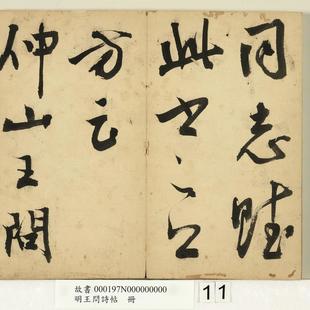 同志賦
此
仲山王問
故書 000197N000000000
明王問詩帖 冊
11